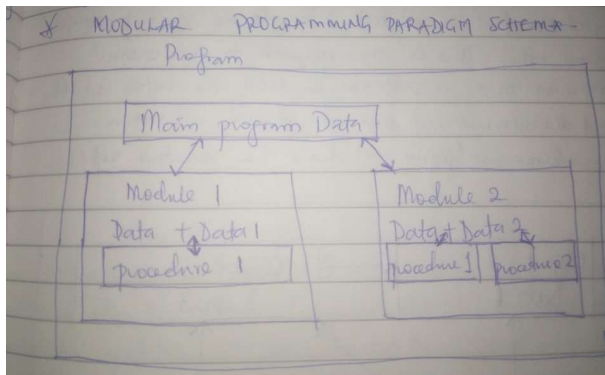 * MODULAR PROGRAMMING PARADIGM SCHEMA -
Program
Main program Data
Module 1
Data + Data 1
procedure 1
Module 2
Data + Data 2
procedure 1
procedure 2